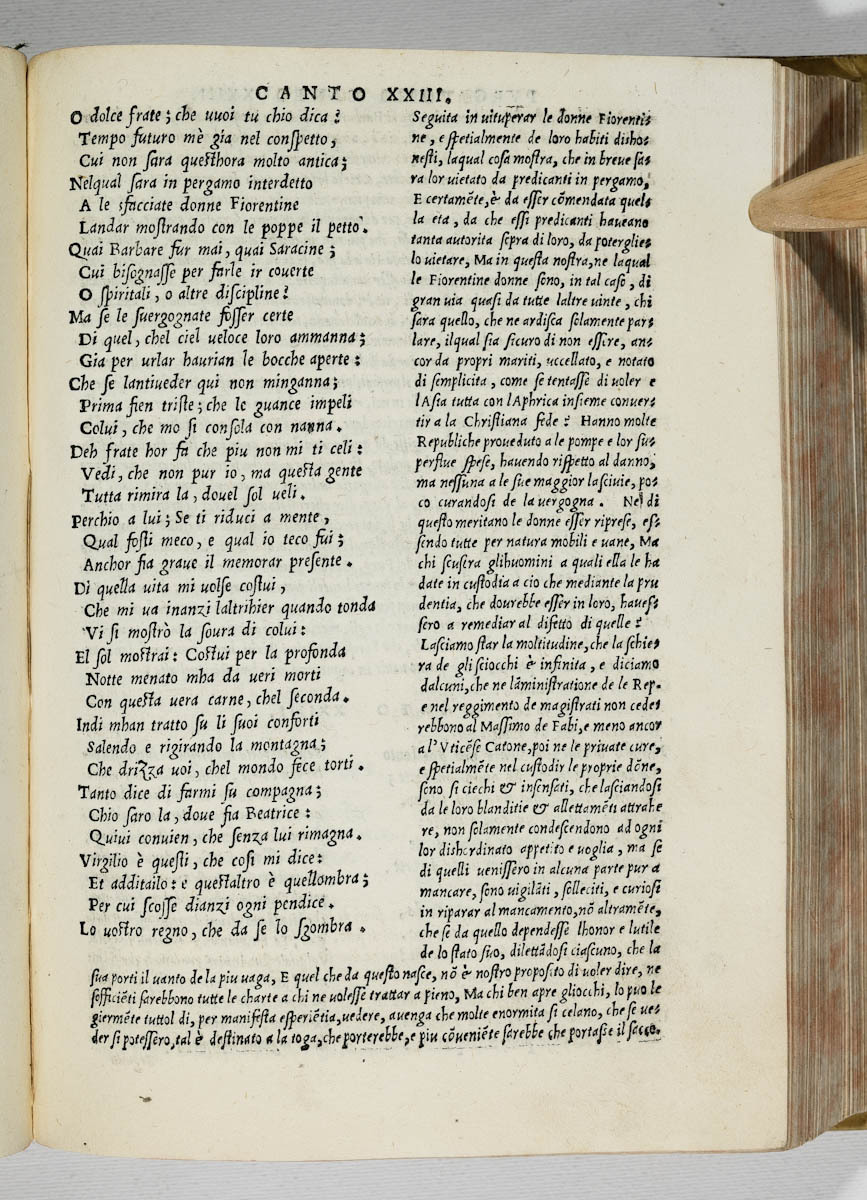 CANTO XXIII.
O dolce frate; che uuoi tu chio dica?
Tempo futuro mè gia nel conspetto,
Cui non sara questhora molto antica;
Nelqual sara in pergamo interdetto
A le sfacciate donne Fiorentine
Landar mostrando con le poppe il petto.
Quai Barbare fur mai, quai Saracine;
Cui bisognasse per farle ir couerte
O spiritali, o altre discipline?
Ma se le suergognate fosser certe
Di quel, chel ciel ueloce loro ammanna;
Gia per urlar haurian le bocche aperte:
Che se lantiueder qui non minganna;
Prima fien triste; che le guance impeli
Colui, che mo si consola con nanna.
Deh frate hor fa che piu non mi ti celi:
Vedi, che non pur io, ma questa gente
Tutta rimira la, douel sol ueli.
Perchio a lui; Se ti riduci a mente,
Qual fosti meco, e qual io teco fui;
Anchor fia graue il memorar presente.
Di quella uita mi uolse costui,
Che mi ua inanzi laltrihier quando tonda
Vi si mostrò la soura di colui:
El sol mostrai: Costui per la profonda
Notte menato mha da ueri morti
Con questa uera carne, chel seconda.
Indi mhan tratto su li suoi conforti
Salendo e rigirando la montagna;
Che drizza uoi, chel mondo fece torti.
Tanto dice di farmi su compagna;
Chio saro la, doue fia Beatrice:
Quiui conuien, che senza lui rimagna.
Virgilio è questi, che cosi mi dice:
Et additailo: e questaltro è quellombra;
Per cui scosse dianzi ogni pendice.
Lo uostro regno, che da se lo sgombra.
Seguita in uituperar le donne Fiorenti-
ne, e spetialmente de loro habiti disho-
nesti, laqual cosa mostra, che in breue sa-
ra lor uietato da predicanti in pergamo,
E certamēte, è da esser cōmendata quel-
la eta, da che essi predicanti haueano
tanta autorita sopra di loro, da poterglie-
lo uietare, Ma in questa nostra, ne laqual
le Fiorentine donne sono, in tal caso, di
gran uia quasi da tutte laltre uinte, chi
sara quello, che ne ardisca solamente par-
lare, ilqual sia sicuro di non essire, an-
cor da propri mariti, uccellato, e notato
di semplicita, come se tentasse di uoler e
lAsia tutta con lAphrica insieme conuer-
tir a la Christiana fede? Hanno molte
Republiche proueduto a le pompe e lor su-
perflue spese, hauendo rispetto al danno,
ma nessuna a le sue maggior lasciuie, po-
co curandosi de la uergogna. Ne di
questo meritano le donne esser riprese, es-
sendo tutte per natura mobili e uane, Ma
chi scusera glihuomini a quali ella le ha
date in custodia a cio che mediante la pru
dentia, che dourebbe esser in loro, haues-
sero a remediar al difetto di quelle?
Lasciamo star la moltitudine, che la schie-
ra de gli sciocchi è infinita, e diciamo
dalcuni, che ne lāministratione de le Rep.
e nel reggimento de magistrati non cede-
rebbono al Massimo de Fabi, e meno ancor
a l'Vticēse Catone, poi ne le priuate cure,
e spetialmēte nel custodir le proprie dōne,
sono si ciechi & insensati, che lasciandosi
da le loro blanditie & allettamēti attrahe
re, non solamente condescendono ad ogni
lor dishordinato appetito e uoglia, ma se
di quelli uenissero in alcuna parte pur a
mancare, sono uigilāti, solleciti, e curiosi
in riparar al mancamento, nō altramēte,
che se da quello dependesse lhonor e lutile
de lo stato suo, dilettādosi ciascuno, che la
sua porti il uanto de la piu uaga, E quel che da questo nasce, nō è nostro proposito di uoler dire, ne
sofficiēti sarebbono tutte le charte a chi ne uolesse trattar a pieno, Ma chi ben apre gliocchi, lo puo le
giermēte tuttol di, per manifesta esperiētia, uedere, auenga che molte enormita si celano, che se ue-
der si potessero, tal è destinato a la toga, che porterebbe, e piu cōueniēte sarebbe che portasse il sacco.